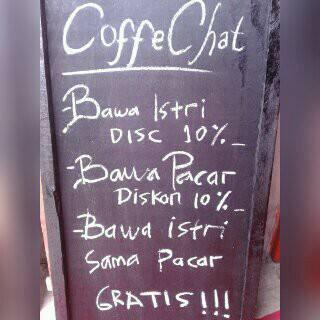 CoffeChat
Bawa Istri
DISC 10%_
-Bawa Pacar
Diskon 10%_
-Bawa istri
Sama Pacar
GRATIS!!!